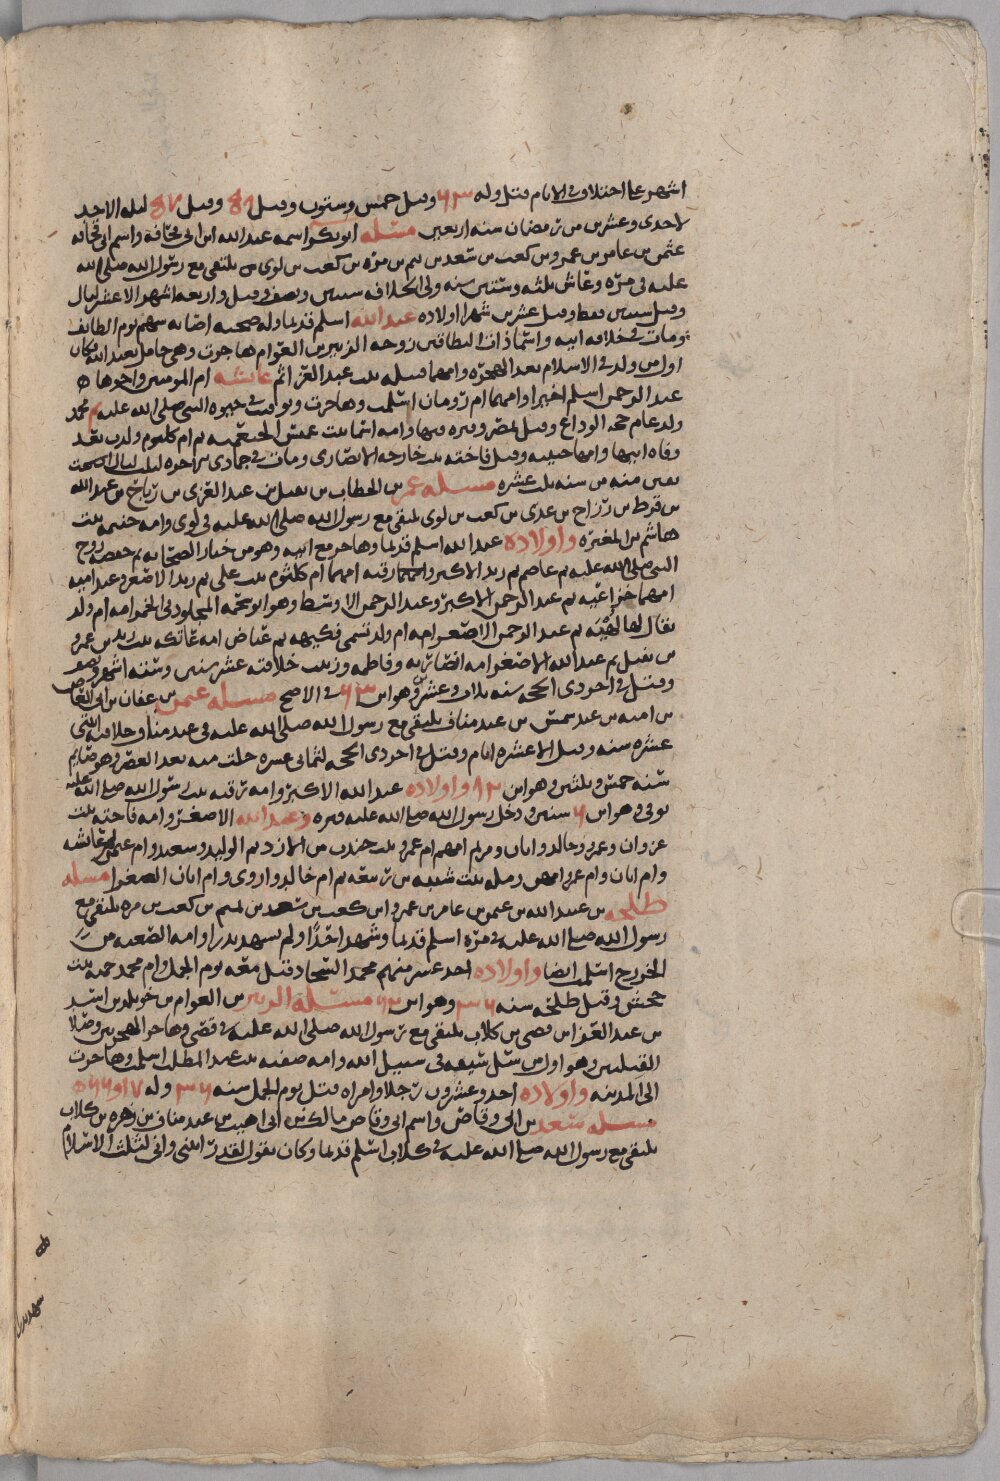 اشهر على اختلاف في الايام قيل وله ٦٣ وقيل خمس وستون وقيل ٥٩ وقيل ٥٧ ليله الاحد
لاحدى وعشرين من رمضان سنه اربعين مسئله ابو بكر اسمه عبد الله ابن ابي قحافة واسم ابي قحافه
عثمن بن عامر بن عمرو بن كعب بن سعد بن تيم بن مره بن كعب بن لوي يلتقي مع رسول الله صلى الله
عليه في مره وعاش ثلثه وستين سنه ولي الخلافه سنتين ونصف وقيل واربعه اشهر الا عشر ليال
وقيل سنتين فقط وقيل عشرين شهرا اولاده عبد الله اسلم قديما وله صحبه اصابه سهم يوم الطايف
ومات في خلافه ابيه واسما ذات النطاقين زوجه الزبير بن العوام هاجرت وهي حامل بعبد الله فكان
اول من ولد في الاسلام بعد الهجره وامهما قتيله بنت عبد العزى ثم عائشه ام المومنين واخوها
عبد الرحمن اسلم اخيرا وامهما ام رومان اسلمت وهاجرت وتوفيت في حيوه النبي صلى الله عليه ثم محمد
ولد عام حجه الوداع وقتل بمصر وقبره بها وامه اسما بنت عميس الخثعميه ثم ام كلثوم ولدت بعد
وفاه ابيها وامها حبيبه وقيل فاخته بنت خارجه الانصاري ومات في جمادى الاخره لثلث ليال
بقين منه من سنه ثلث عشره مسئله عمر بن الخطاب بن نفيل بن عبد العزى بن رياح بن عبد الله
بن قرط بن رزاح بن عدي بن كعب بن لوي يلتقي مع رسول الله صلى الله عليه في لوي وامه حنتمه بنت
هاشم بن المغيره واولاده عبد الله اسلم قديما وهاجر مع ابيه وهو من خيار الصحابه ثم حفصه زوج
النبي صلى الله عليه ثم عاصم ثم زيد الاكبر ورقيه امهما ام كلثوم بنت علي ثم زيد الاصغر وعبد الله
امهما خزاعيه ثم عبد الرحمن الاكبر وعبد الرحمن الاوسط وهو ابو شحمه المجلود في الخمر امه ام ولد
يقال لها لهيه ثم عبد الرحمن الاصغر امه ام ولد تسمى فكيهه ثم عياض امه عاتكه بنت زيد بن عمرو
بن نفيل ثم عبد الله الاصغر امه انصاريه وفاطمه وزينب خلافته عشر سنين وسته اشهر ونصف
وقتل في اخر ذي الحجه سنه ثلاث وعشرين وهو ابن ٦٣ في الاصح مسئله عثمن بن عفان بن ابي العاص
بن اميه بن عبد شمس بن عبد مناف يلتقي مع رسول الله صلى الله عليه في عبد مناف وخلافته اثنتى
عشره سنه وقيل الا عشره ايام وقتل في اخر ذي الحجه لثماني عشره خلت منه بعد العصر وهو صايم
سنه خمس وثلثين وهو ابن ٨٢ واولاده عبد الله الاكبر وامه رقيه بنت رسول الله صلى الله عليه
توفي وهو ابن ٦ سنين ودخل رسول الله صلى الله عليه قبره وعبد الله الاصغر وامه فاخته بنت
غزوان وعمرو وخالد وابان ومريم امهم ام عمرو بنت جندب من الازد ثم الوليد وسعيد وام عثمن ثم عائشه
وام ابان وام عمرو امهن رمله بنت شيبه بن ربيعه ثم ام خالد واروى وام ابان الصغرا مسئله
طلحه بن عبيد الله بن عثمن بن عامر بن عمرو ابن كعب بن سعد بن تيم بن كعب بن مره يلتقي مع
رسول الله صلى الله عليه في مره اسلم قديما وشهد احدا ولم يشهد بدرا وامه الصعبه من
الخزرج اسلمت ايضا واولاده احد عشر منهم محمد السجاد قتل معه يوم الجمل وام محمد حمنه بنت
جحش وقتل طلحه سنه ٣٦ وهو ابن ٦٢ مسئله الزبير بن العوام بن خويلد بن اسد
بن عبد العزى ابن قصي بن كلاب يلتقي مع رسول الله صلى الله عليه في قصي وهاجر الهجرتين وصلا
القبلتين وهو اول من سل سيفه في سبيل الله وامه صفيه بنت عبد المطلب اسلمت وهاجرت
الى المدينه واولاده احد وعشرون رجلا وامراه قتل يوم الجمل سنه ٣٦ وله ٦٧ او ٦٦
مسئله سعد بن ابي وقاص واسم ابي وقاص مالك بن ابي اهيب بن عبد مناف بن زهره بن كلاب
يلتقي مع رسول الله صلى الله عليه في كلاب اسلم قديما وكان يقول لقد رايتني واني لثلث الاسلام
شهد بدرا